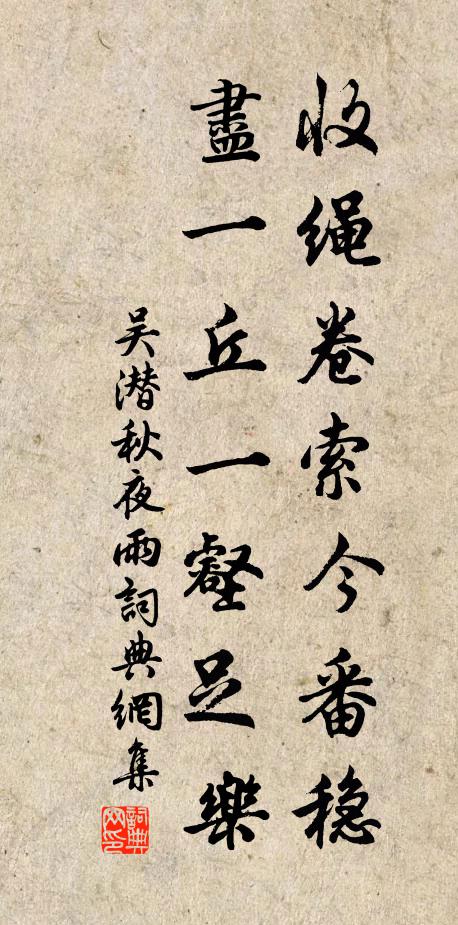 收繩卷索今番稳
盡一丘一壑足樂
吴潜秋夜雨詞典網集
詞典网印